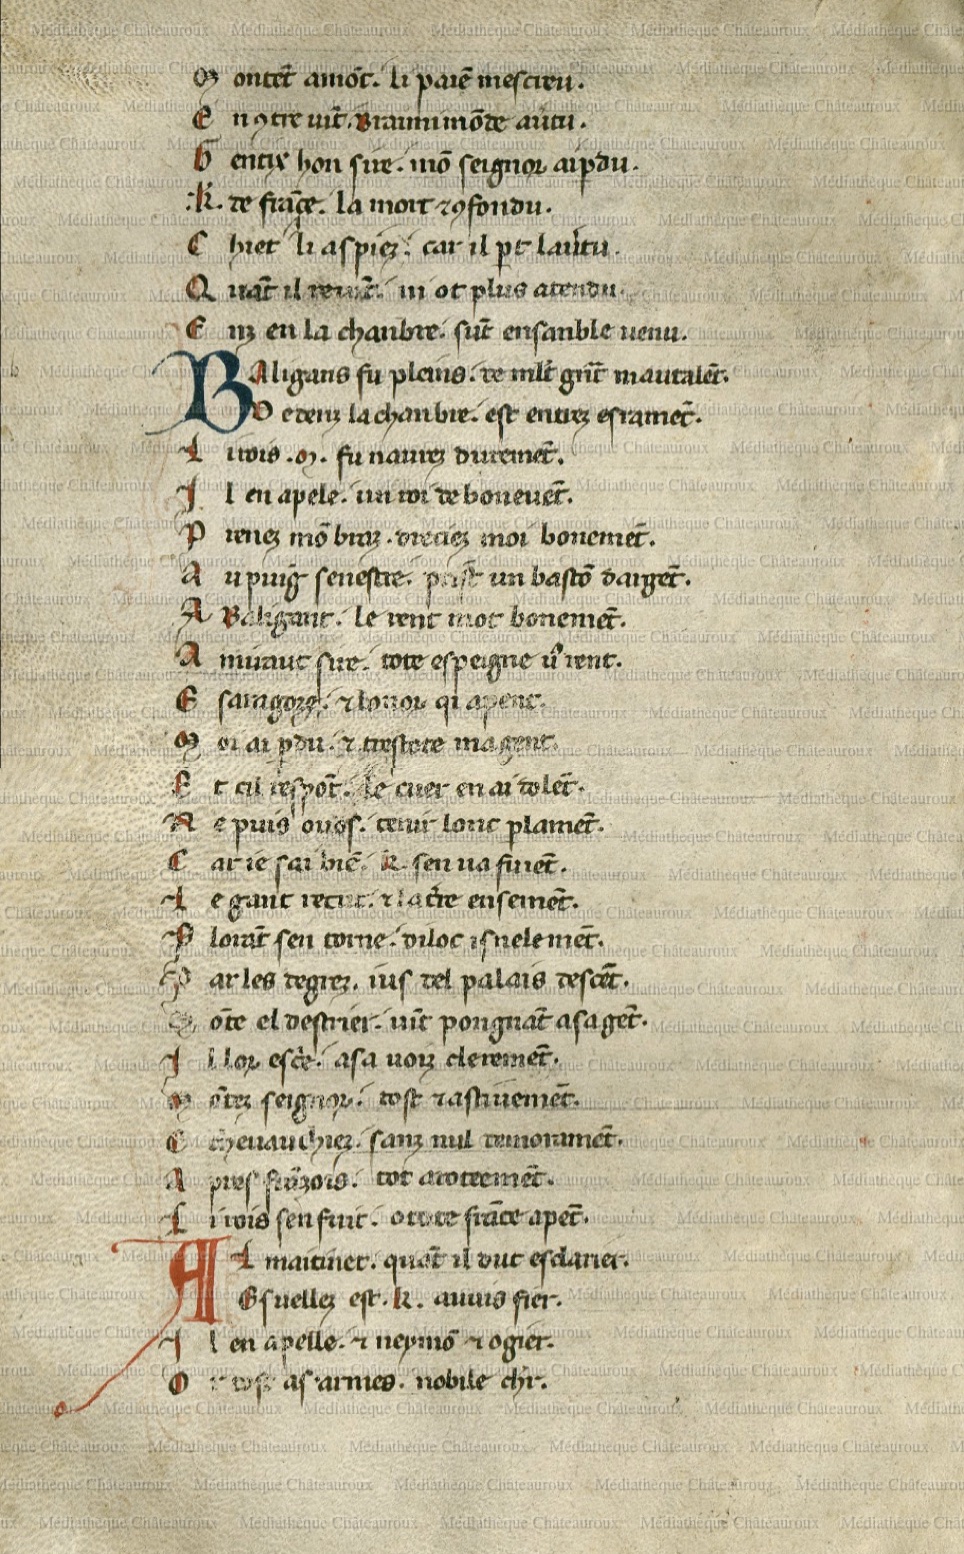 M ontēt amōt. li paiē mescreu.
E n ꝯtre uiēt. Braimimōde au͛tu.
G entix hon sire. mō seignor ai ꝑdu.
.K. de frāce. la mort ⁊ ꝯfondu.
C hiet li as piez. car il ꝑt la u͛tu.
Q uāt il reuiēt. ni ot plus atendu.
E nz en la chanbre. sūt ensanble uenu.
B Aligans fu pleins. de mlt̄ grāt mautalēt.
D edenz la chanbre. est entrez esramēt.
L i rois .M. fu naurez duremēt.
I l en apele. un roi de boneuēt.
P renez mō braz. dreciez moi bonemēt.
A u puig senestre. prist un bastō dargēt.
A Baligant. le rent mot bonemēt.
A miraut sire. tote espeigne u͛ rent.
E saragoze. ⁊ lonor qi apent.
M oi ai ꝑdu. ⁊ trestote ma gent.
E t cil respōt. le cuer en ai dolēt.
N e puis o uos. tenir lonc plamēt.
C ar ie sai biē. K. sen ua fuiēt.
L e gant recut. ⁊ la t͛re ensemēt.
P lorāt sen torne. diloc isnelemēt.
P ar les degrez. ius del palais descēt.
M ōte el destrier. uiēt pongnāt a sa gēt.
I l lor escͥe. a sa uoiz cleremēt.
M ōtez seignor. tost ⁊ astiuemēt.
E cheuauchiez. sanz nul demoramēt.
A pres frāzois. tot aroteemēt.
L i rois sen fuit. o ceus de frāce apēt.
A L maitinet. quāt il dut esclarier.
Esuellez est .K. au uis fier.
I l en apelle. ⁊ neymō ⁊ ogier.
O r tost as armes. nobile chr̄.
Médiathèque Châteauroux